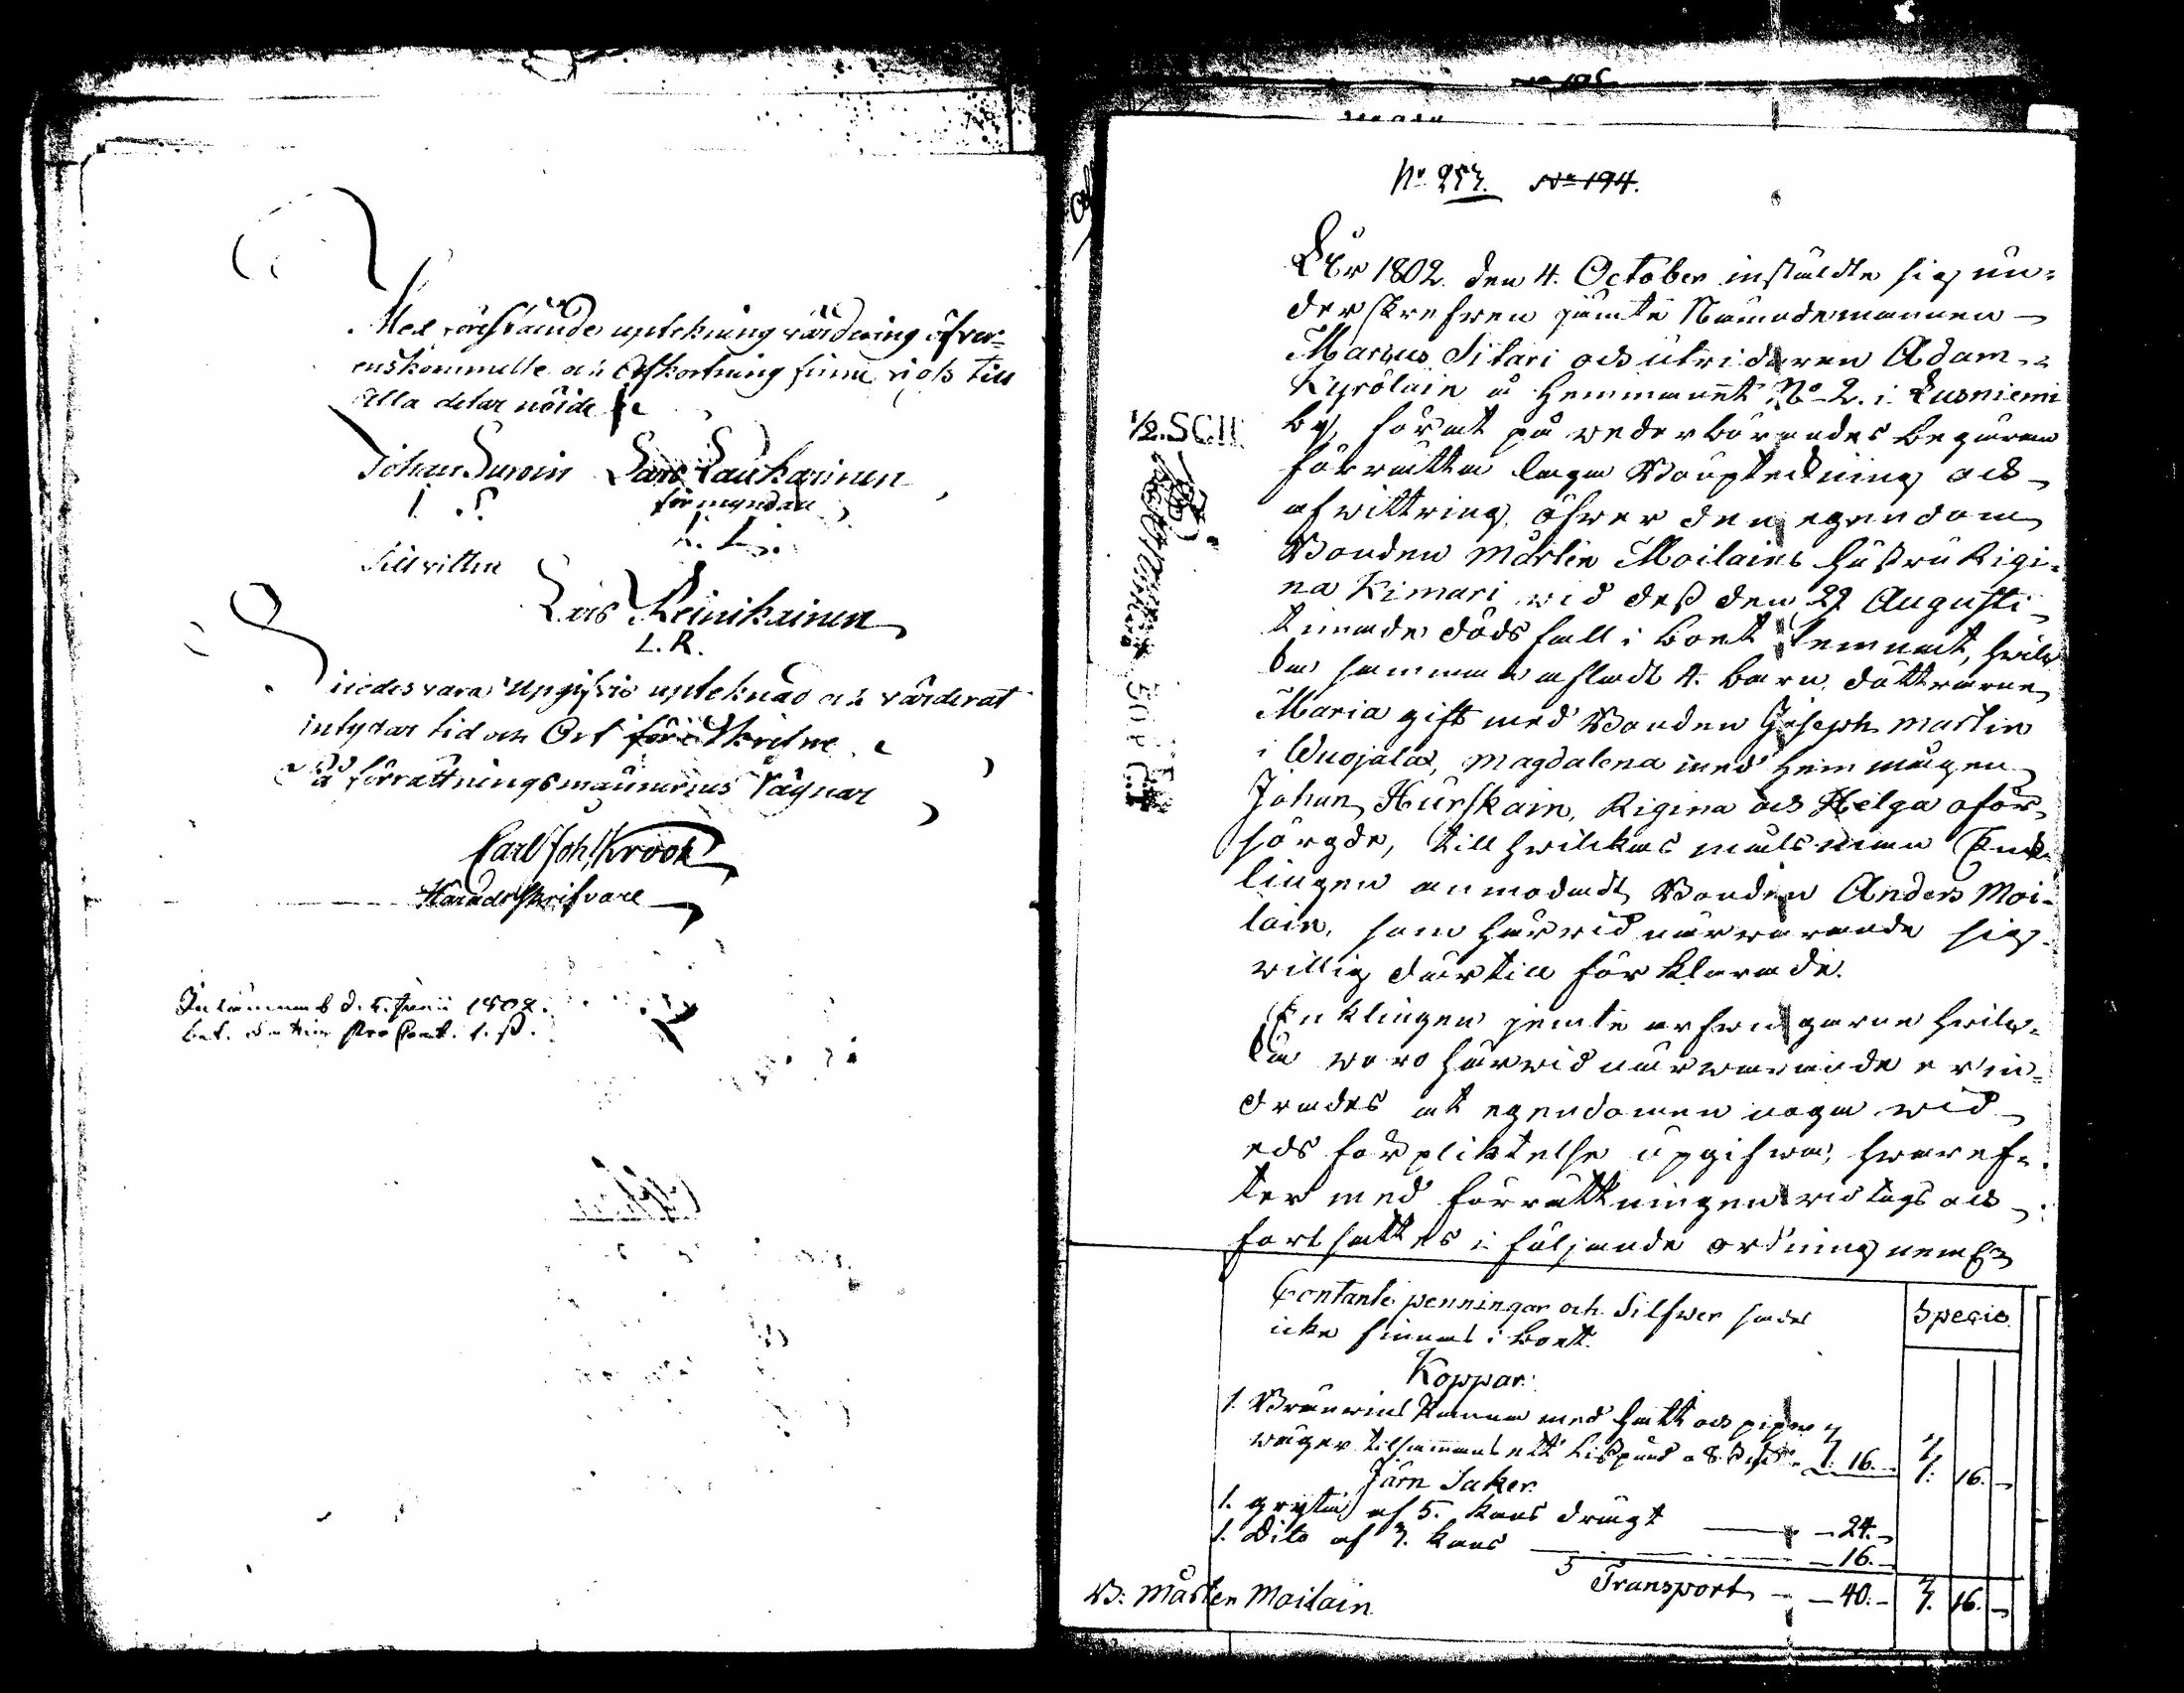 Med föreståënde uptekning värdering öfver-
enskommelse och Afkortning finne vi oss till
alla delar nöide
Johan Lars Laukarinen
förmyndare
L. L.
Till vittne
Lars Reinikainen
L. R.
vara Upgifvit upteknad och värderat
intygar tid och Ort förr skrifne
På förrättningsmännernes vägnar
Carl Joh. Krook
Häradsskrifvare
d. 5. Junii 1802.
No 253. No 194.
Åhr 1802. den 4. October instälte sig un-
derskrefven jämte Nämndemannen
Marcus Sitari och utridaren Adam
Kyrölain å Hemmanet No 2. i Lusniemi
by, för at på wederbörandes begäran
förrätta laga Boupteckning och
afwittring öfwer den egendom
Bonden Mårten Moilains hustru Rigi-
na Kimari wid dess den 29 Augusti
timade dödsfall i boet lemnat, hwil-
ka samman aflat 4. barn, döttrarne
Maria gift med Bonden Joseph Martin
i Wuojala, Magdalena med Hemmågen
Johan Hurskain, Rigina och Helga oför-
sörgde, till hwilckas målsman Enk-
lingen anmodat Bonden Anders Moi-
lain, som härwid närwarande sig
willig därtill förklarade.
Enklingen jemte arfwingarne hwil-
ka woro härwid närwarande erin-
drades at egendomen noga wid
eds förpliktelse upgifwa, hwaref-
ter med förrättningen widtogs och
fortsattes i följande ordning neml.
1/2. SCH
Contante penningar och Silfwer sades
icke finnas i boet.
Specie.
Koppar.
1. Bränwins Panna med hatt och pipor
wäger tilsammans ett Lispund 16. 16.
Järn Saker
1. gryta af 5. kans drägt — 24.
1. Dito af 3. kans — 16.
Transport — 40. 16.
B: Mårten Moilain